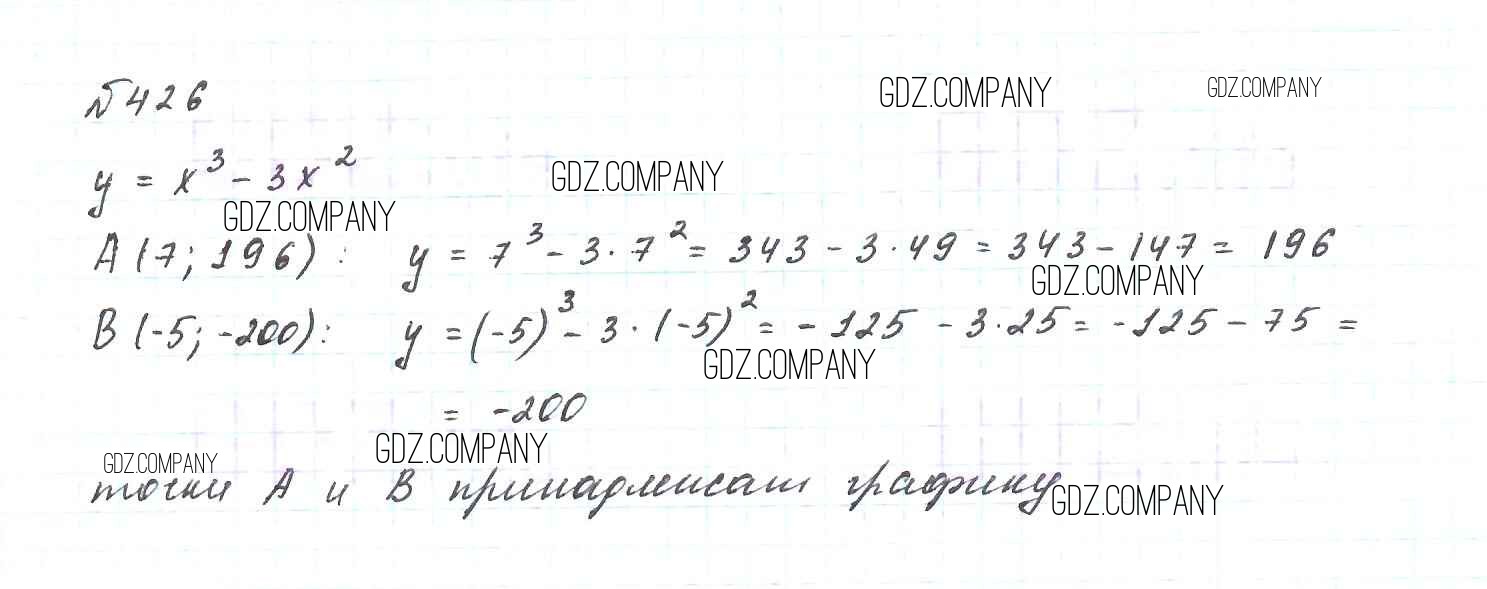 №426
GDZ.COMPANY GDZ.COMPANY
y = x³ - 3x²
GDZ.COMPANY
GDZ.COMPANY
A (7; 196) : y = 7³ - 3·7² = 343 - 3·49 = 343 - 147 = 196
GDZ.COMPANY
B (-5; -200): y = (-5)³ - 3·(-5)² = -125 - 3·25 = -125 - 75 =
GDZ.COMPANY
= -200
GDZ.COMPANY
GDZ.COMPANY
точки A и B принадлежат графику
GDZ.COMPANY